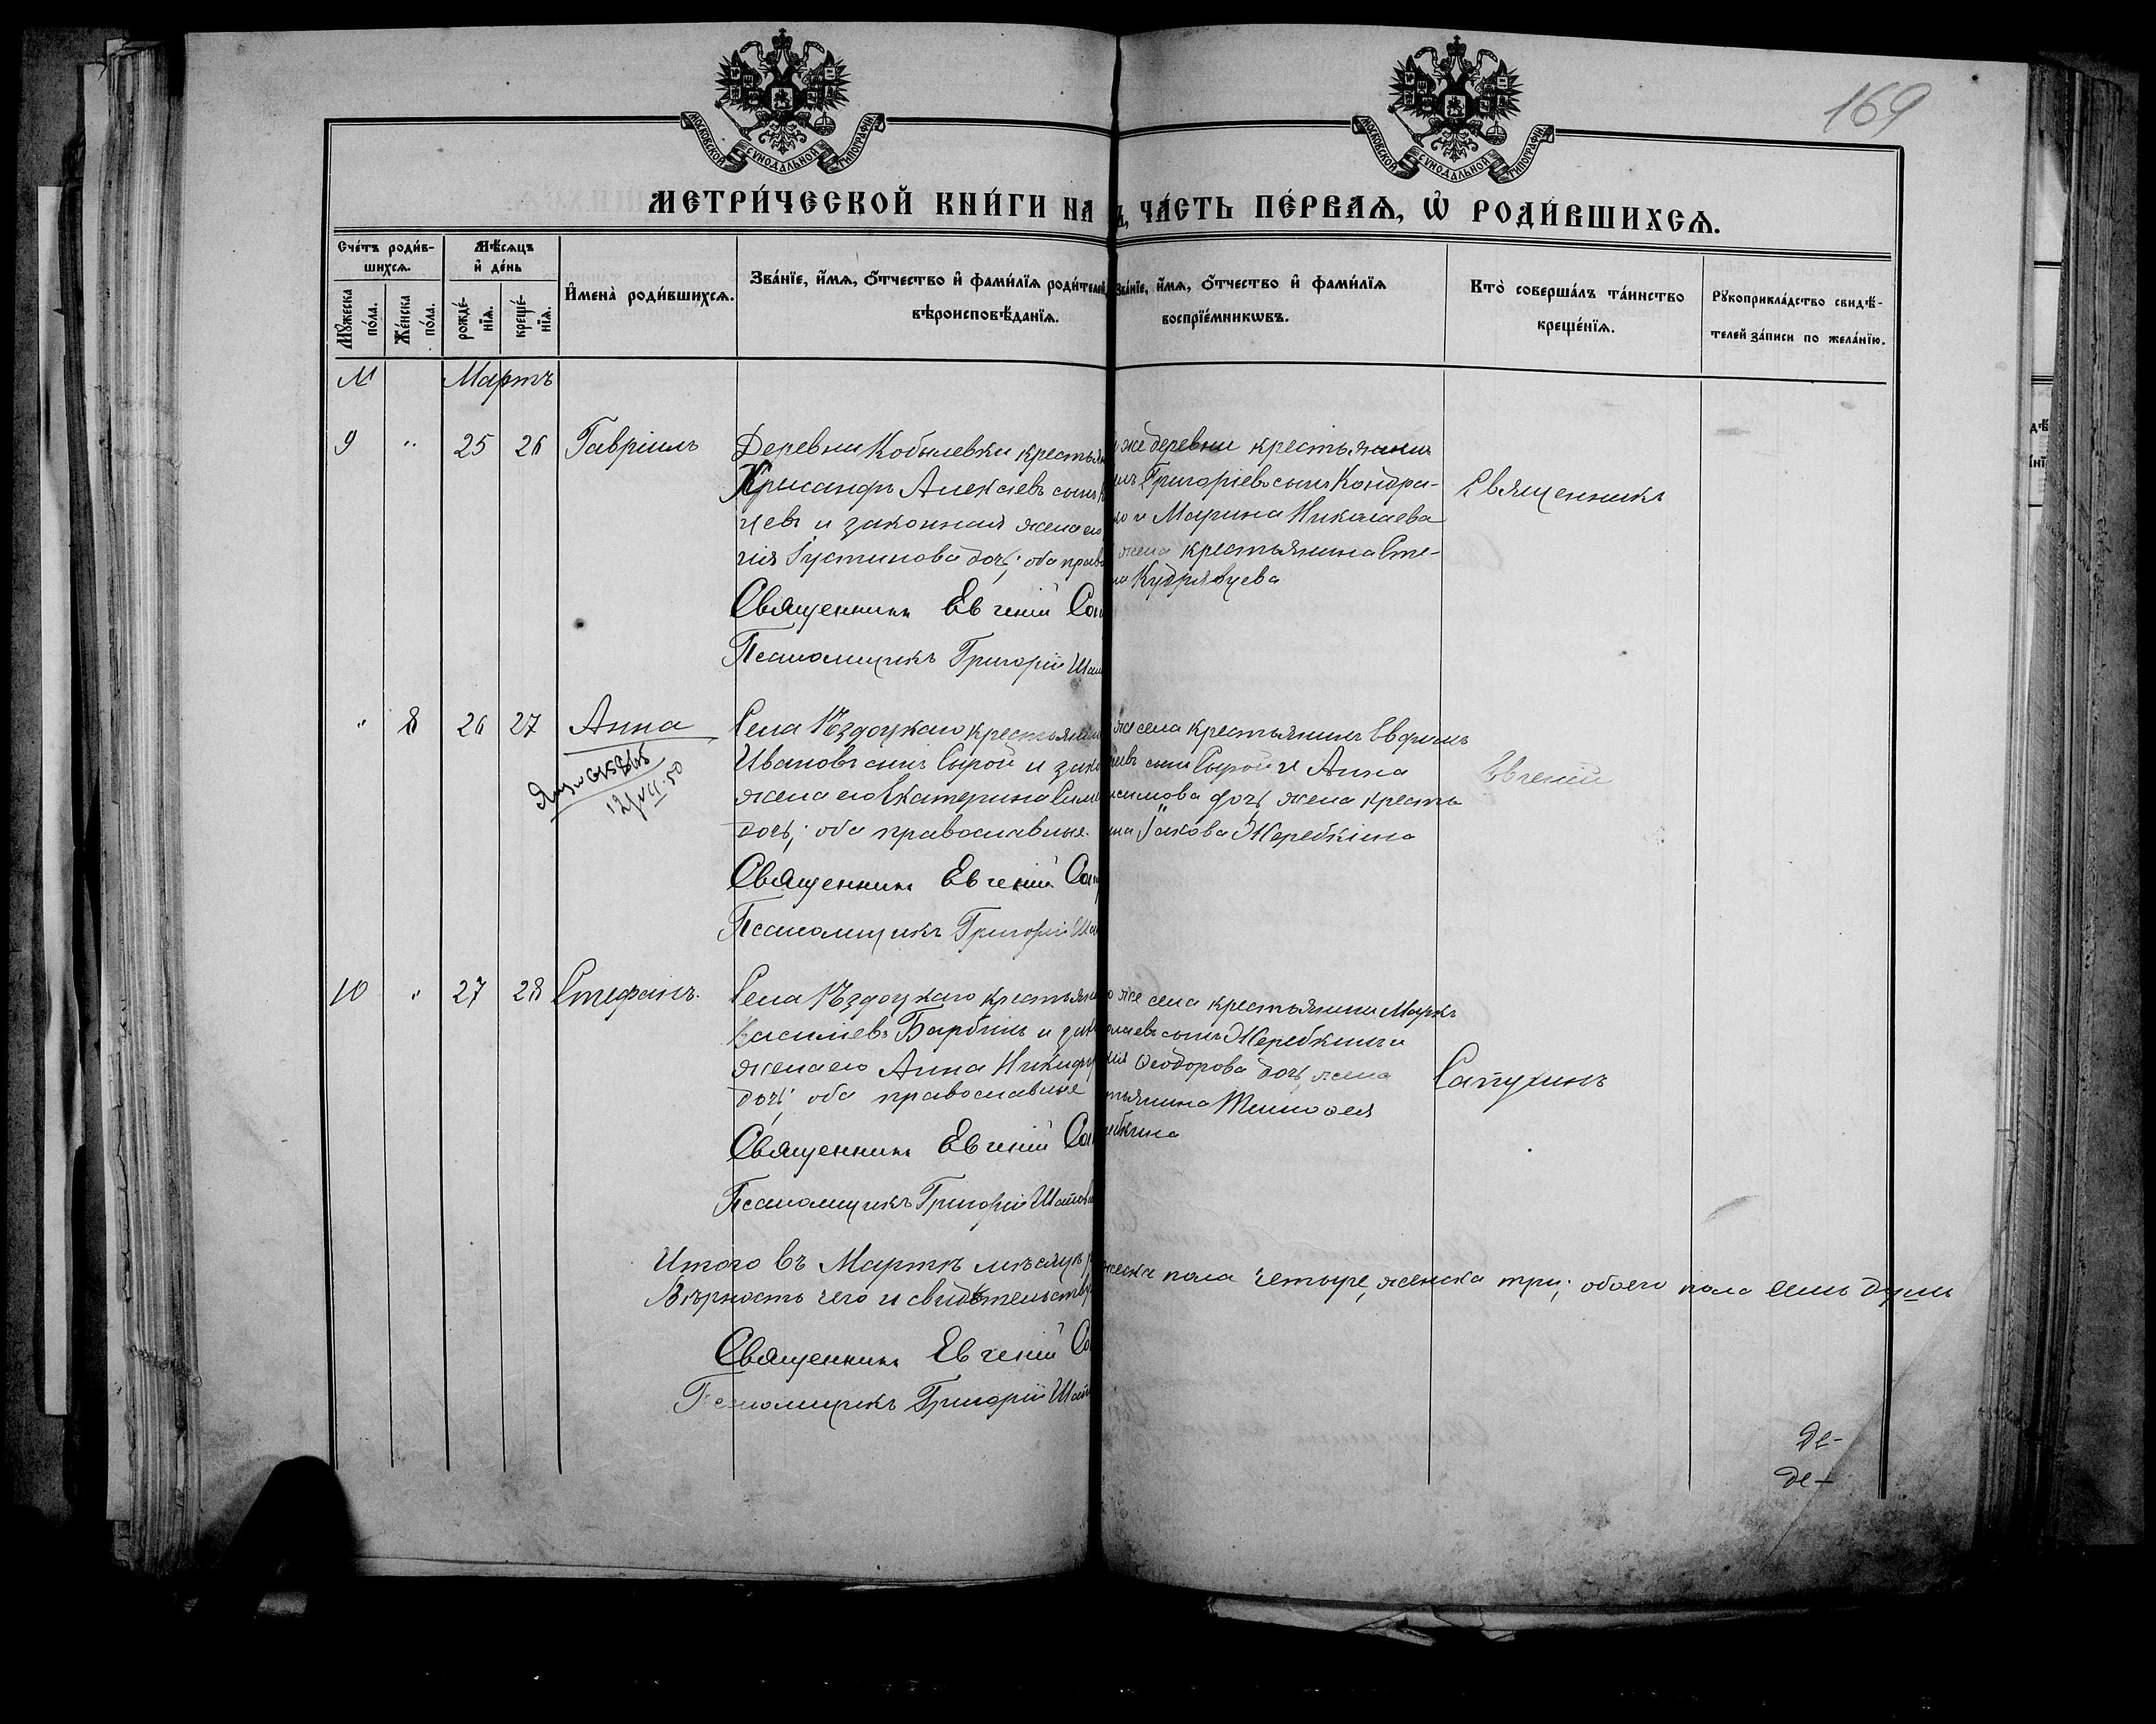 169
МОСКОВСКОЙ СѴНОДАЛЬНОЙ ТИПОГРАФІИ
МОСКОВСКОЙ СѴНОДАЛЬНОЙ ТИПОГРАФІИ
МЕТРИ́ЧЕСКОЙ КНИ́ГИ НА
, ЧА́СТЬ ПЕ́РВАѦ, Ѡ҆ РОДИ́ВШИХСѦ.
Сче́тъ роди́в-
шихсѧ.
Мꙋ́жеска по́ла.
Же́нска по́ла.
Мѣ́сѧцъ
и҆ де́нь
рожде́-
нїѧ.
креще́-
нїѧ.
И҆мена̀ роди́вшихсѧ.
Зва́нїе, и҆́мѧ, ѻ҆́тчество и҆ фами́лїѧ роди́телей
вѣроисповѣ́данїѧ.
Зва́нїе, и҆́мѧ, ѻ҆́тчество и҆ фами́лїѧ
воспрїе́мникѡвъ.
Кто̀ соверша́лъ та́инство
креще́нїѧ.
Рꙋкоприкла́дство свидѣ́-
телей за́писи по жела́нїю.
М Мартъ
9 " 25 26 Гавріилъ
Деревни Кобылевки крестьян
Хрисанфъ Алексѣевъ сынъ К
цевъ и законная жена его
гія Іустинова дочь; оба прав
Священникъ Евгеній Сап
Псаломщикъ Григорій Шап
же деревни крестьянинъ
Григоріевъ сынъ Кондра-
и Марина Николаева
жена крестьянина Сте-
на Кудрявцева
Священникъ
" 8 26 27 Анна
12/VII.50
Села Ѣздоцкаго крестьянин
Ивановъ сынъ Сырой и зако
жена его Екатерина Сим
дочь; оба православные.
Священникъ Евгеній Сап
Псаломщикъ Григорій Ша
же села крестьянинъ Евфимъ
сынъ Сырой и Анна
симова дочь жена кресть
на Іакова Жеребкина
Евгеній
10 " 27 28 Стефанъ.
Села Ѣздоцкаго крестьян
Василіевъ Барбинъ и зак
жена его Анна Никифор
дочь; оба православные
Священникъ Евгеній Сап
Псаломщикъ Григорій Шапов
же села крестьянинъ Маркъ
олаевъ сынъ Жеребкинъ и
Ѳеодорова дочь жена
тьянина Тимоѳея
ребкина
Сапухинъ
Итого въ Мартѣ мѣсяцѣ жеска пола четыре, женска три; обоего пола семь душъ
Вѣрность чего и свидѣтельству
Священникъ Евгеній Са
Псаломщикъ Григорій Шап
де-
де-